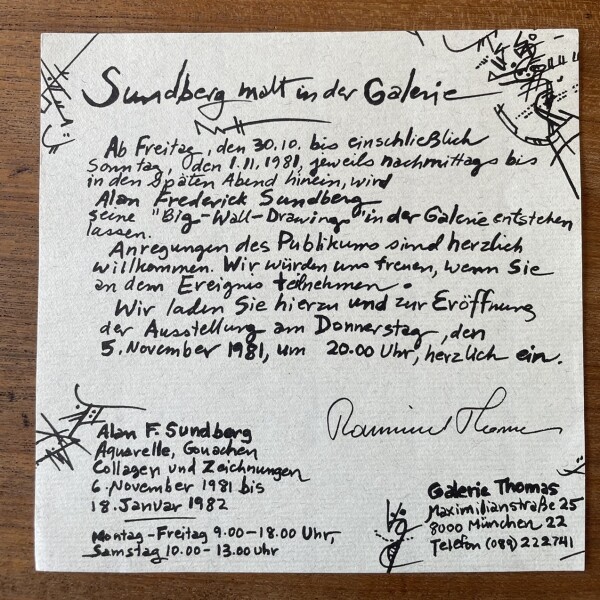 Sundberg malt in der Galerie
Ab Freitag, den 30.10. bis einschließlich
Sonntag, den 1.11.1981, jeweils nachmittags bis
in den Späten Abend hinein, wird
Alan Frederick Sundberg
seine "Big-Wall-Drawings" in der Galerie entstehen
lassen.
Anregungen des Publikums sind herzlich
willkommen. Wir würden uns freuen, wenn Sie
an dem Ereignis teilnehmen.
Wir laden Sie hierzu und zur Eröffnung
der Ausstellung am Donnerstag, den
5. November 1981, um 20.00 Uhr, herzlich ein.
Thomas
Alan F. Sundberg
Aquarelle, Gouachen
Collagen und Zeichnungen
6. November 1981 bis
18. Januar 1982
Montag - Freitag 9.00 - 18.00 Uhr,
Samstag 10.00 - 13.00 Uhr
Galerie Thomas
Maximilianstraße 25
8000 München 22
Telefon (089) 222741